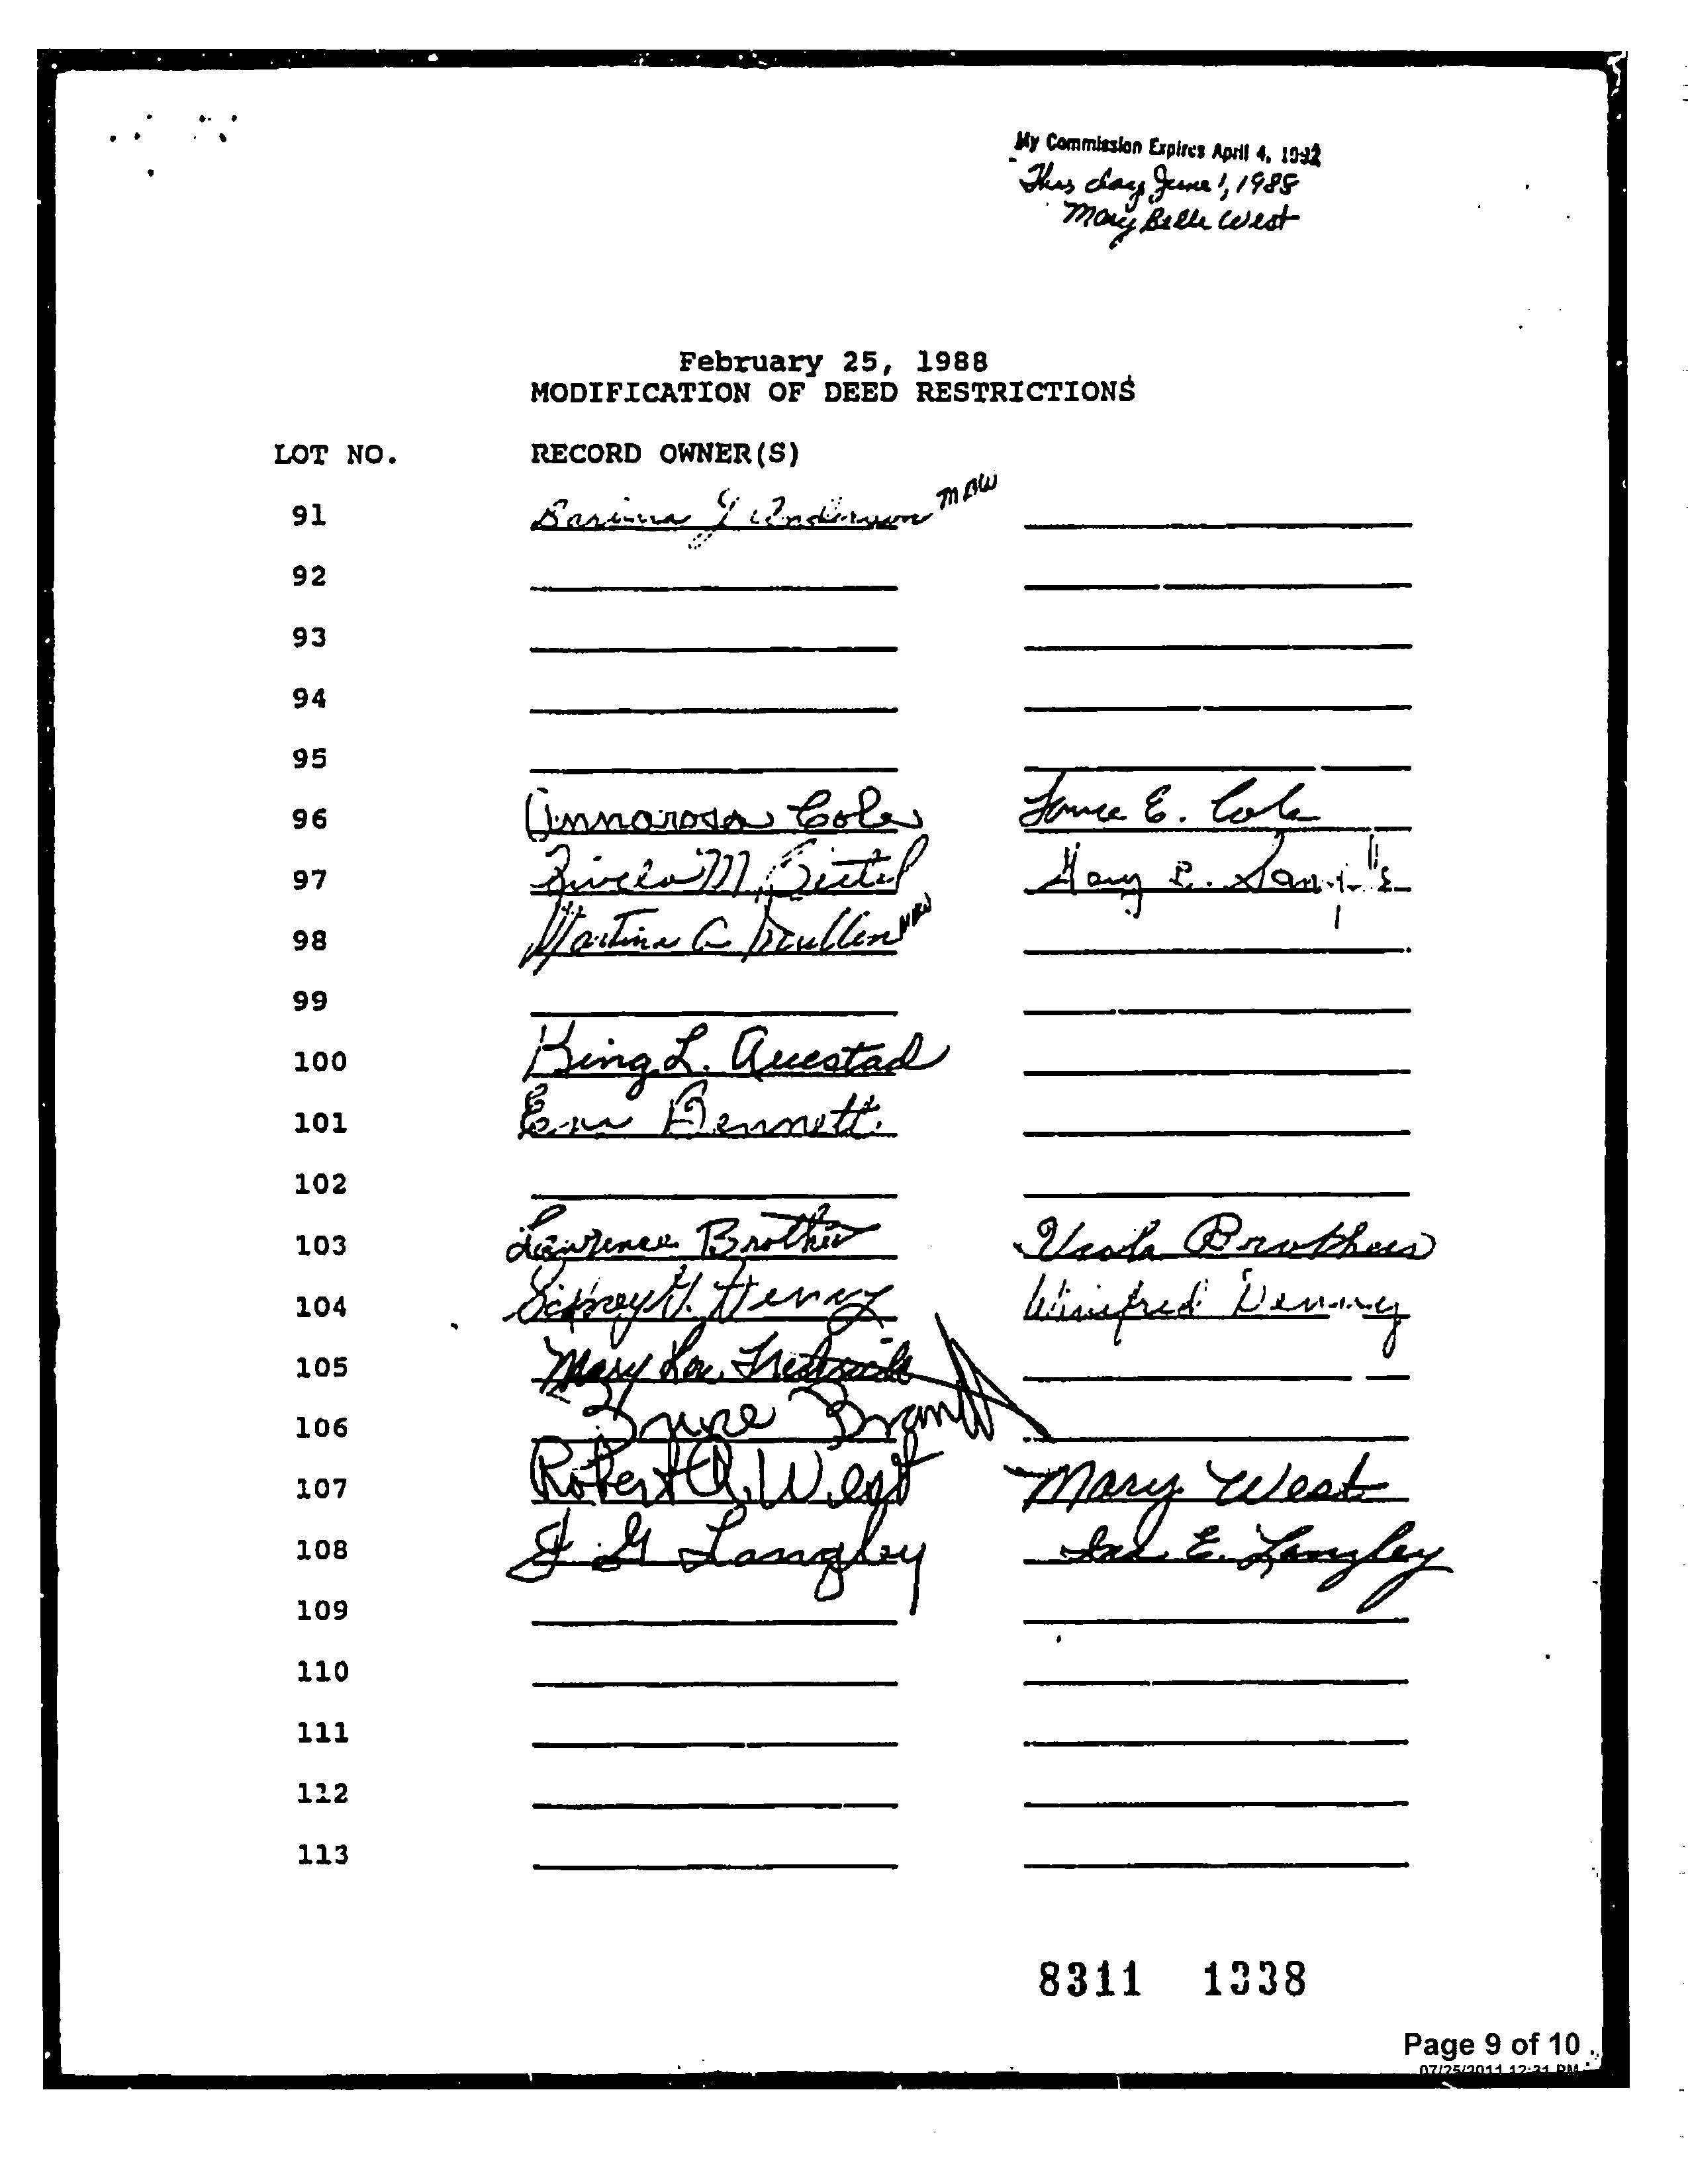 My Commission Expires April 4, 1992
This day June 1, 1988
Mary Belle West
February 25, 1988
MODIFICATION OF DEED RESTRICTIONS
LOT NO. RECORD OWNER(S)
91 Anderson MBW
92
93
94
95
96 Annarosa Cole E. Cole
97 M. Gary
98 MBW
99
100 King L. Auestad
101 Bennett
102
103 Lawrence Brothers Viola Brothers
104 Sidney Denny Winifred Denny
105 Mary Lou
106 Bruce
107 Robert A. West Mary West
108 J G Langley E. Langley
109
110
111
112
113
8311 1338
Page 9 of 10
07/25/2011 12:31 PM